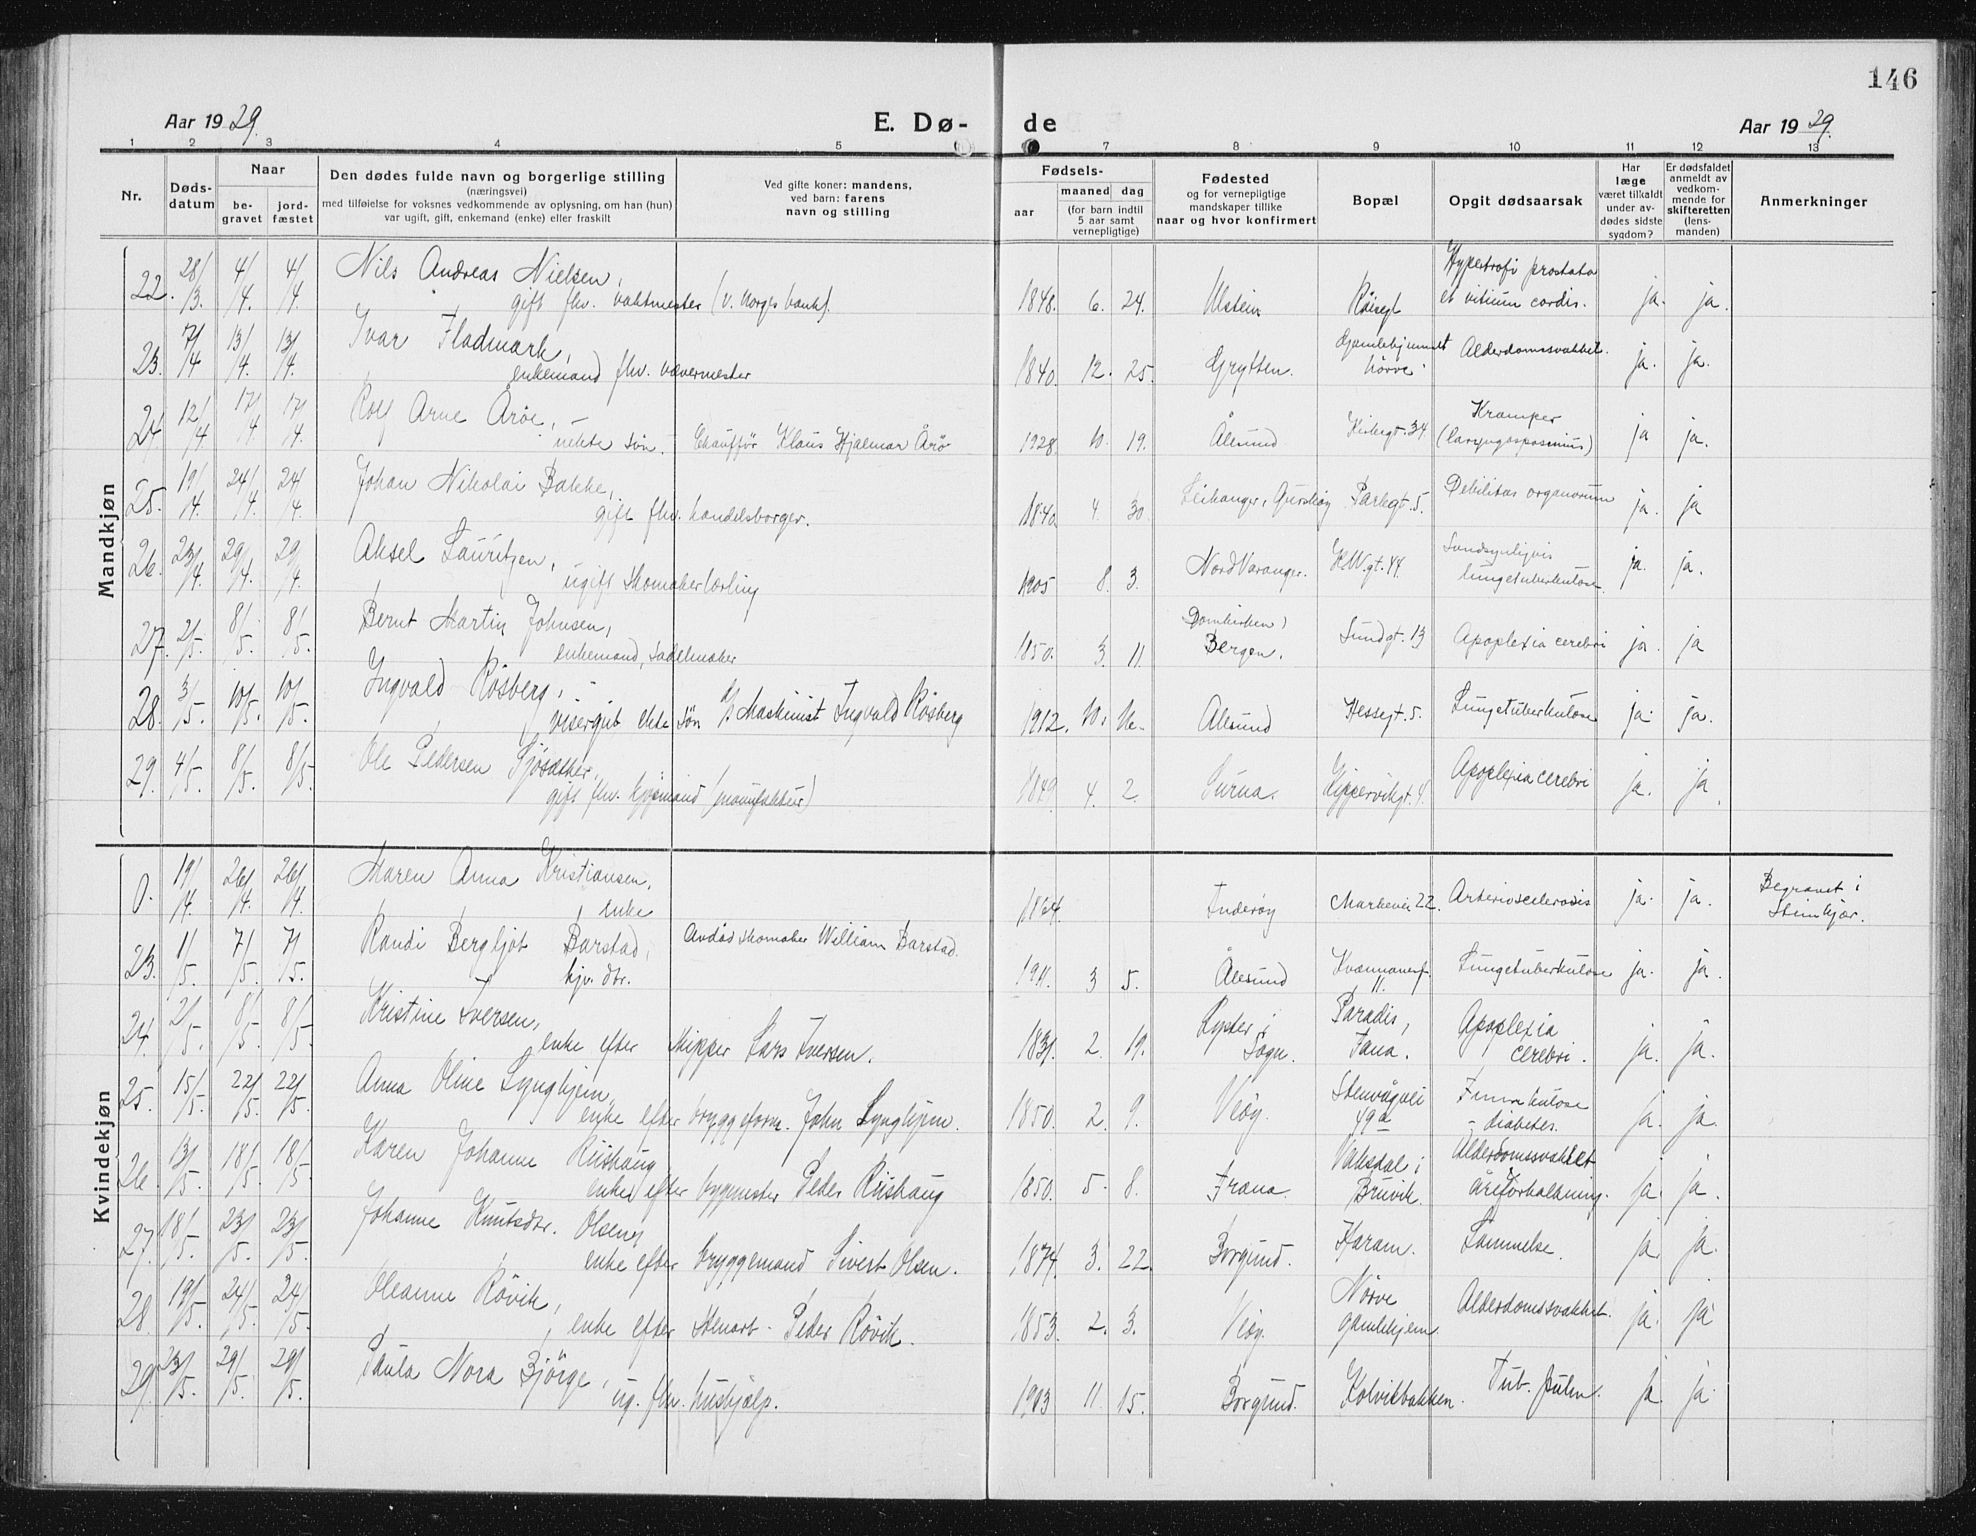 146
Aar 1929. E. Dø- de Aar 1929.
1 2 3 4 5 7 8 9 10 11 12 13
Nr. Døds-datum Naar be-gravet jord-fæstet Den dødes fulde navn og borgerlige stilling (næringsvei) med tilføielse for voksnes vedkommende av oplysning, om han (hun) var ugift, gift, enkemand (enke) eller fraskilt Ved gifte koner: mandens, ved barn: farens navn og stilling Fødsels- aar maaned dag (for barn indtil 5 aar samt vernepligtige) Fødested og for vernepligtige mandskaper tillike naar og hvor konfirmert Bopæl Opgit dødsaarsak Har læge været tilkaldt under av-dødes sidste sygdom? Er dødsfaldet anmeldt av vedkom-mende for skifteretten (lens-manden) Anmerkninger
Mandkjøn
22. 28/3. 4/4. 4/4. Nils Andreas Nielsen, gift fhv. vaktmester (v. Norges bank). 1848. 6. 24. Ulstein Røisegt Hypertrofi prostata et vitium cordis. ja. ja.
23. 7/4 13/4. 13/4. Ivar Fladmark, enkemand fhv. vævermester 1840. 12. 25. Grytten. Gamlehjemmet Nörve Alderdomssvakhet. ja. ja.
24. 12/4 17/4 17/4. Rolf Arne Åröe, uekte sön. Chaufför Klaus Hjalmar Årö 1928. 10. 19. Ålesund Kirkegt. 34 Kramper (laryngospasmus) ja ja.
25. 19/4. 24/4. 24/4. Johan Nikolai Bakke, gift fhv. handelsborger. 1840. 4. 30. Leikanger, Gurskøy Parkgt. 5. Debilitas organorum ja. ja
26. 23/4. 29/4. 29/4. Aksel Lauritzen, ugift skomakerlærling 1905 8. 3. Nord Varanger. K.W.gt. 44. Sandsynligvis lungetuberkulose. ja. ja.
27. 2/5. 8/5. 8/5. Bernt Martin Johnsen, enkemand, sadelmaker 1850. 3. 11. Domkirken, Bergen. Sundgt. 13 Apoplexia cerebri ja. ja
28. 3/5. 10/5. 10/5. Ingvald Rösberg, visergut ekte sön af Maskinist Ingvald Rösberg 1912. 10. Ålesund Hessegt. 5. Lungetuberkulose ja. ja.
29. 4/5. 8/5. 8/5. Ole Pedersen Sjösæther, gift fhv. kjøpmand (manufaktur) 1849. 4. 2. Surna. Kippervikgt. 4. Apoplexia cerebri ja. ja.
Kvindekjøn
0. 19/4. 26/4. 26/4. Maren Anna Kristiansen, enke 1864. Inderøy Markevei 22. Arteriosclerosis ja. ja. Begravet i Steinkjær.
23. 1/5. 7/5. 7/5. Randi Bergljot Barstad, hjv. dtr. Avdöd skomaker William Barstad. 1911. 3 5. Ålesund 11. Lungetuberkulose ja. ja.
24. 2/5. 8/5. 8/5. Kristine Iversen, enke efter skipper Lars Iversen. 1831. 2. 19. Lyster i Sogn. Paradis, Fana. Apoplexia cerebri. ja. ja.
25. 15/5. 22/5. 22/5. Anna Oline Lynghjem, enke efter bryggeform. John Lynghjem. 1850. 2. 9. Veöy. Stenvågvei 49a diabetes. ja. ja.
26. 13/5. 18/5. 18/5. Karen Johanne Riishaug enke efter bygmester Peder Riishaug 1850. 5. 8. Fræna. Vaksdal i Bruvik. Alderdomssvakhet åreforkalkning. ja. ja.
27. 18/5. 23/5. 23/5. Johanne Knutsdtr. Olsen, enke efter bryggemand Sivert Olsen. 1874. 3. 22. Borgund. Haram. Lammelse. ja. ja.
28. 19/5. 24/5. 24/5. Oleanne Rövik, enke efter stenarb. Peder Rövik. 1853. 2. 3. Veöy. Nörve gamlehjem Alderdomssvakhet. ja. ja
29. 23/5. 29/5. 29/5. Paula Nora Björge, ug. fhv. hushjælp. 1903 11. 15. Borgund. Kolvikbakken. Tub. pulm. ja. ja.